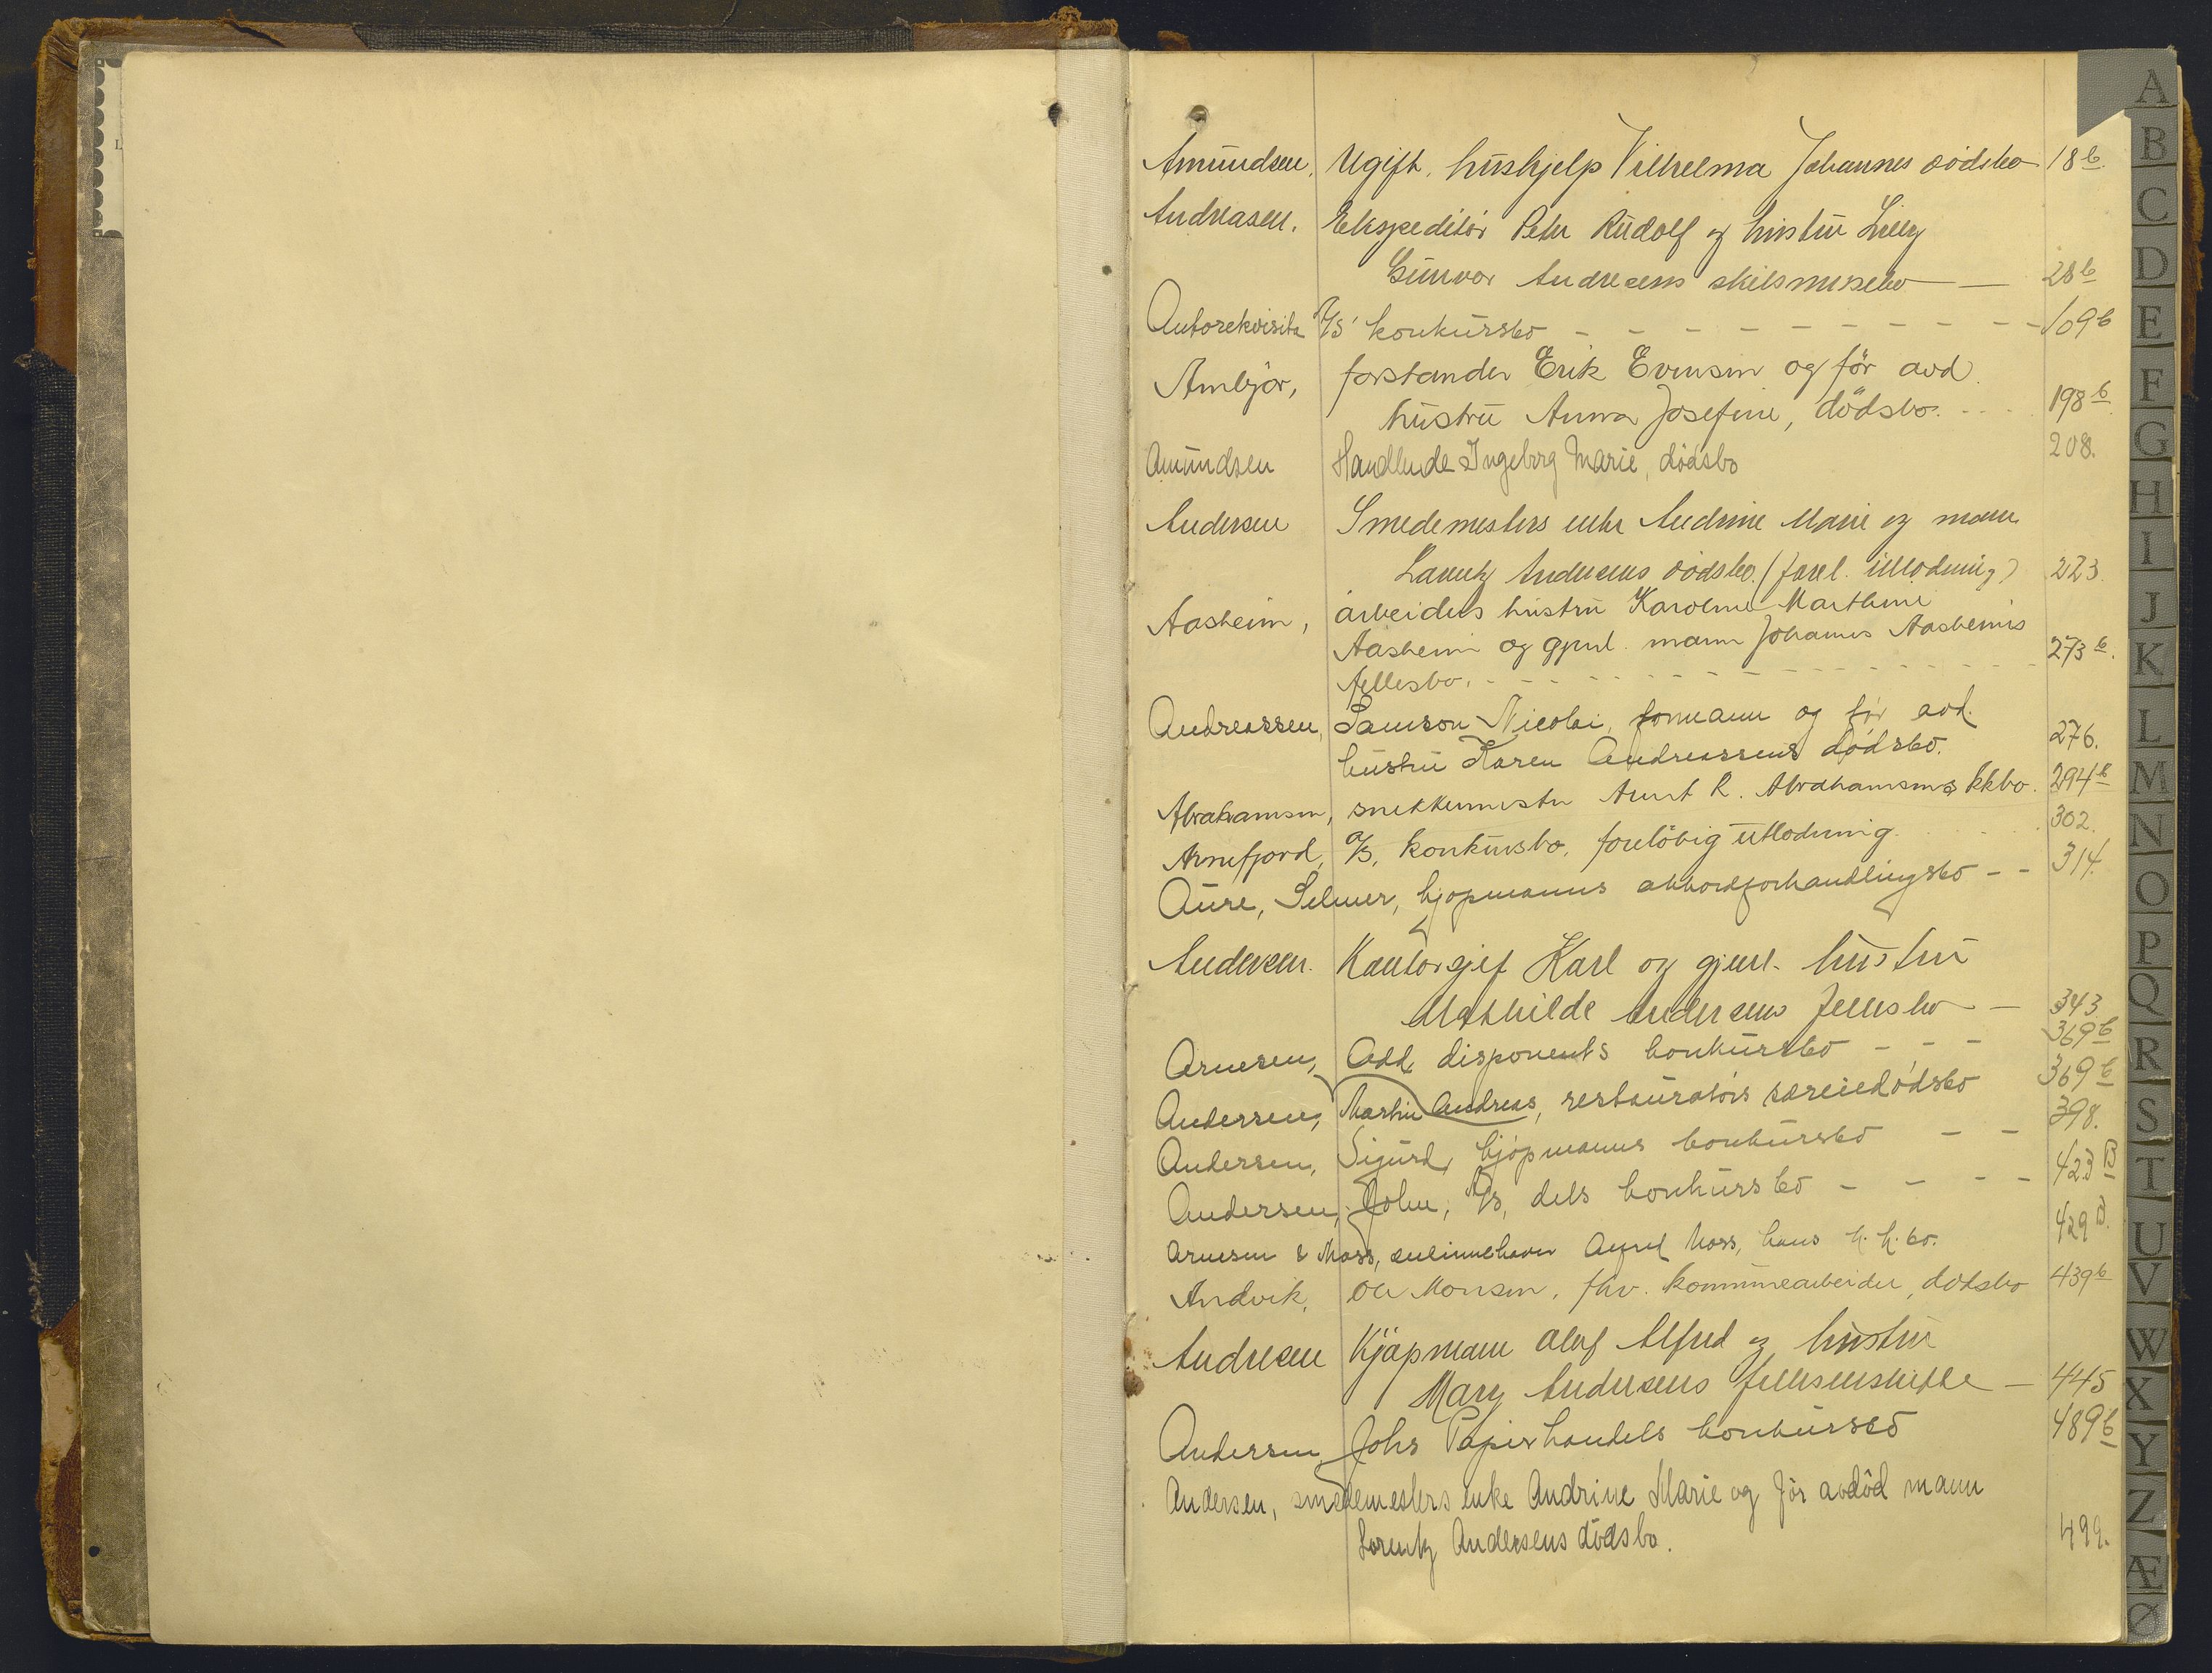 Amundsen, Ugift. hushjelp Vilhelma Johannes dödsbo 18b.
Andreasen. Ekspeditör Peter Rudolf og hustru Lilly
Gunvor Andresens skilsmissebo — 28b
Autorekvisita A/S' konkursbo - - - - - - - - - 109b
Arnbjör, forstander Erik Evensen og för avd.
hustru Anna Josefine, dödsbo. - - - 198b.
Amundsen Handlende Ingeborg Marie, dödsbo 208.
Andersen Smedemesters enke Andrine Marie og mann
Lorentz Andersens dödsbo. (forel. utlodning) 223.
Aasheim, arbeiders hustru Karoline Marthine
Aasheim og gjenl. mann Johannes Aasheims
fellesbo. - - - - - - - - - 273b.
Andreassen, Samson Nicolai, formann og før avd.
hustru Karen Andreassens dødsbo. 276.
Abrahamsen, snekkermester Arnt R. Abrahamsens kkbo. 294b
Arnefjord, A/S, konkursbo, forelöbig utlodning. 302.
Aure, Selmer, kjøpmanns akkordforhandlingsbo - - 314.
Andersen. Kontorsjef Karl og gjenl. hustru
Mathilde Andersens fellesbo — 343
Arnesen, Odd, disponents konkursbo - - - 369b
Andersen, Martin Andreas, restauratørs særeiedødsbo 369b
Andersen, Sigurd, kjøpmanns konkursbo - - 398.
Andersen, John, A/S, dels konkursbo - - - - 423B
Arnesen & Moss, eneinnehaver Moss, hans k.k.bo. 429B.
Andvik, Ole Monsen, fhv. kommunearbeider, dødsbo 439b
Andresen Kjöpmann Olaf Alfred og hustru
Mary Andresens felleseieskifte — 445
Andersen, Johs Papirhandels konkursbo 489b
Andersen, smedemesters enke Andrine Marie og för avdöd mann
Lorentz Andersens dödsbo. 499.
A
B
C
D
E
F
G
H
I
J
K
L
M
N
O
P
Q
R
S
T
U
V
W
X
Y
Z
Æ
Ø